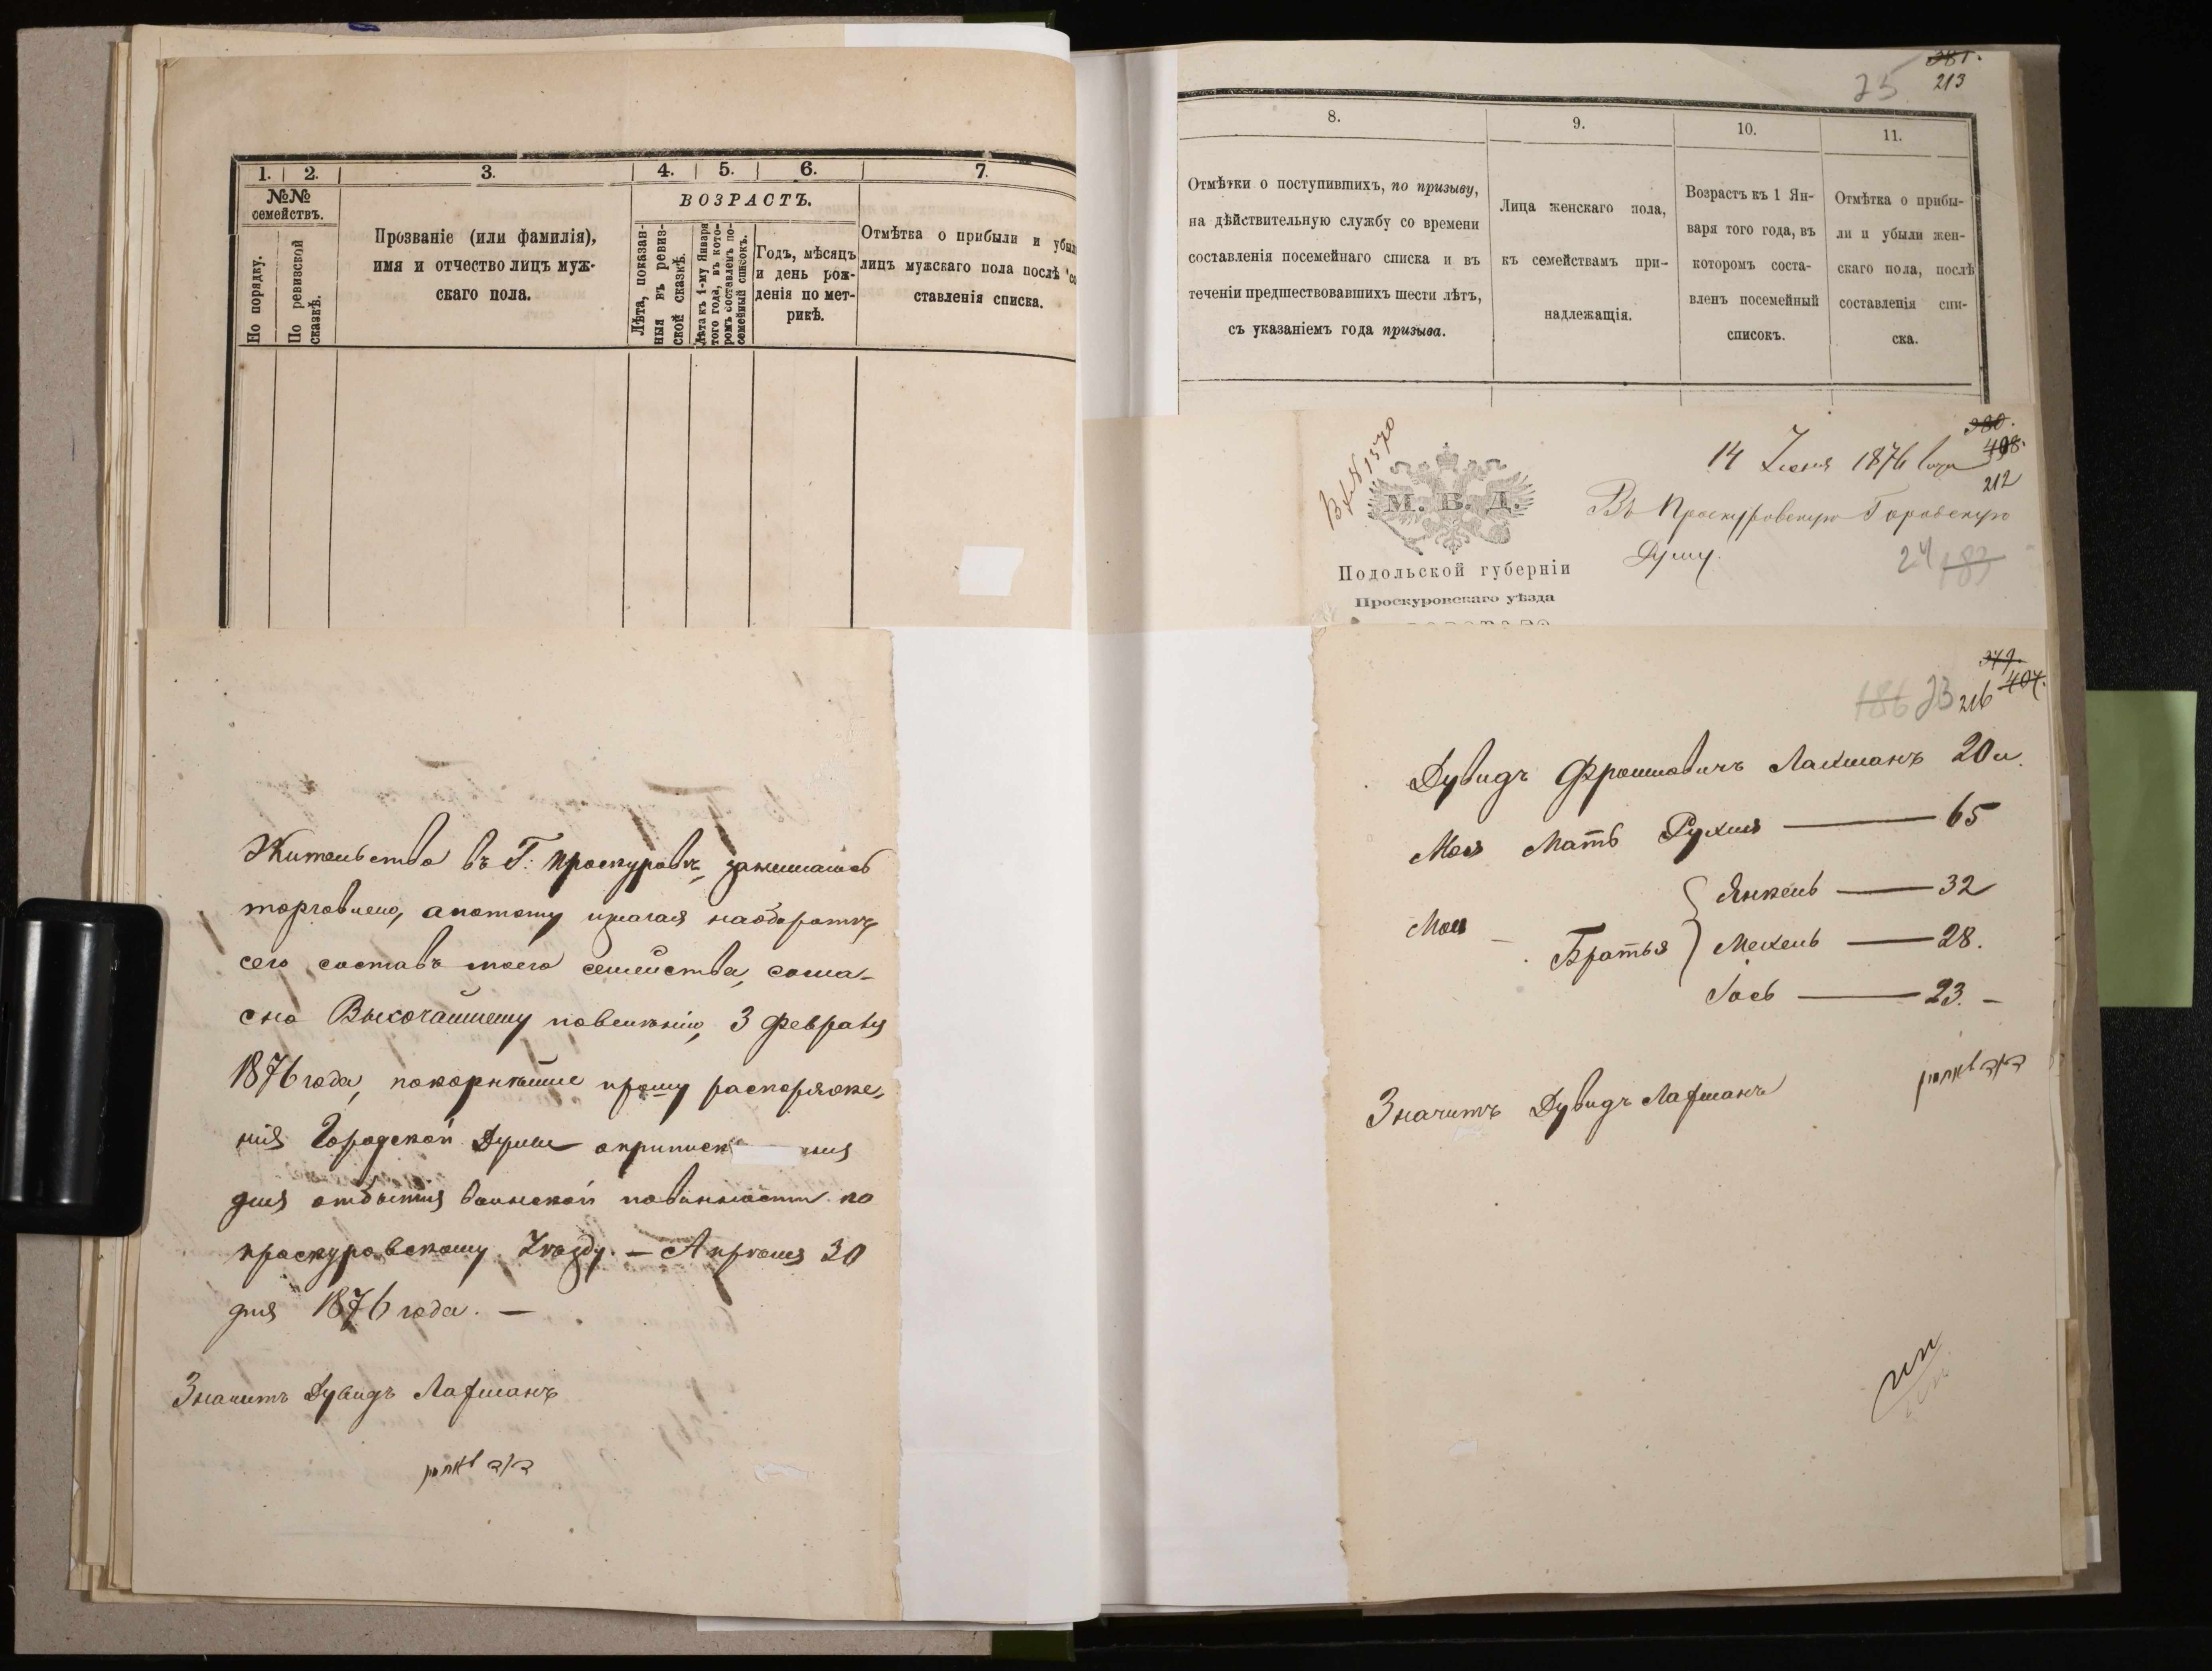 1. 2. 3. 4. 5. 6. 7.
№№ семействъ.
По порядку.
По ревизской сказкѣ.
Прозваніе (или фамилія),
имя и отчество лицъ муж-
скаго пола.
ВОЗРАСТЪ.
Лѣта, показан-
ныя въ ревиз-
ской сказкѣ.
Лѣта къ 1-му Января
того года, въ кото-
ромъ составленъ по-
семейный списокъ.
Годъ, мѣсяцъ
и день рож-
денія по мет-
рикѣ.
Отмѣтка о прибыли и убыл
лицъ мужскаго пола послѣ со
ставленія списка.
Жительства въ Г: Проскуровѣ, занимаюсь
торговлею, а потому излагая на оборотѣ
сего составъ моего семейства, согла-
сно Высочайшему повелѣнію, 3 февраля
1876 года, покорнѣйше прошу распоряже-
нія Городской Думы о припискѣ
для отбытія воинской повинности по
проскуровскому Уѣзду. — Апрѣля 30
дня 1876 года. —
Значитъ Дувидъ Лафманъ
381.
25 213
8. 9. 10. 11.
Отмѣтки о поступившихъ, по призыву,
на дѣйствительную службу со времени
составленія посемейнаго списка и въ
теченіи предшествовавшихъ шести лѣтъ,
съ указаніемъ года призыва.
Лица женскаго пола,
къ семействамъ при-
надлежащія.
Возрастъ къ 1 Ян-
варя того года, въ
которомъ соста-
вленъ посемейный
списокъ.
Отмѣтка о прибы-
ли и убыли жен-
скаго пола, послѣ
составленія спи-
ска.
380.
408.
212
Вх № 1570
14 Іюня 1876 года
М. В. Д.
Въ Проскуровскую Городскую
Думу.
24 183
Подольской губерніи
Проскуровскаго уѣзда
379.
407.
186 23 216
Дувидъ Фроимовичъ Лахманъ 20 л.
Моя Мать Рухля — 65
Мои Братья
Янкель — 32
Мехель — 28.
Іось — 23. —
Значитъ Дувидъ Лафманъ